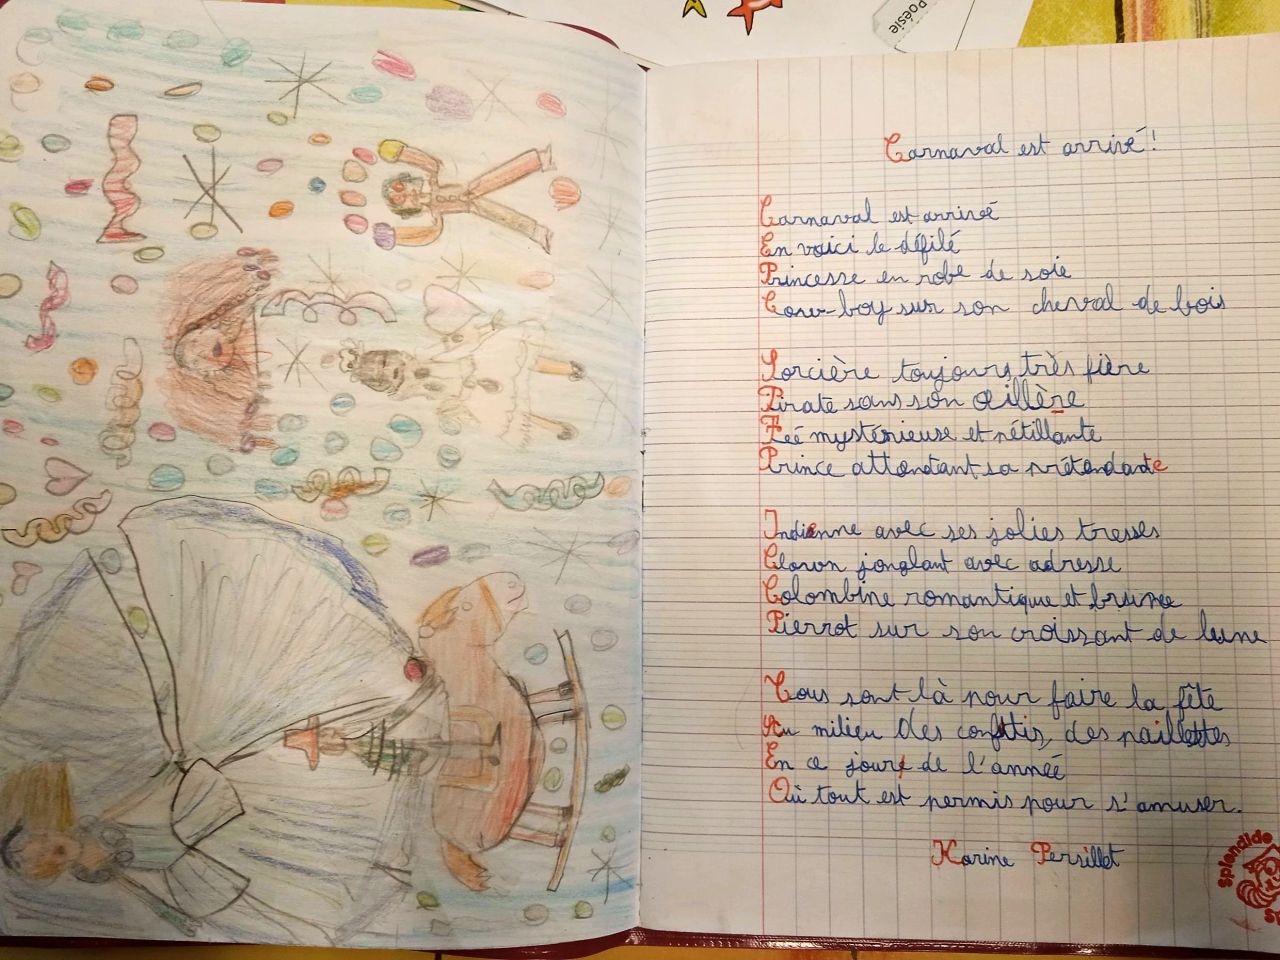 Poésie
Carnaval est arrivé !
Carnaval est arrivé
En voici le défilé
Princesse en robe de soie
Cow-boy sur son cheval de bois
Sorcière toujours très fière
Pirate sans son œillère
Feé mystérieuse et pétillante
Prince attendant sa prétendante
Indienne avec ses jolies tresses
Clown jonglant avec adresse
Colombine romantique et brune
Pierrot sur son croissant de lune
Tous sont là pour faire la fête
Au milieu des confettis, des paillettes
En ce jour de l'année
Où tout est permis pour s'amuser.
Karine Persillet
splendide